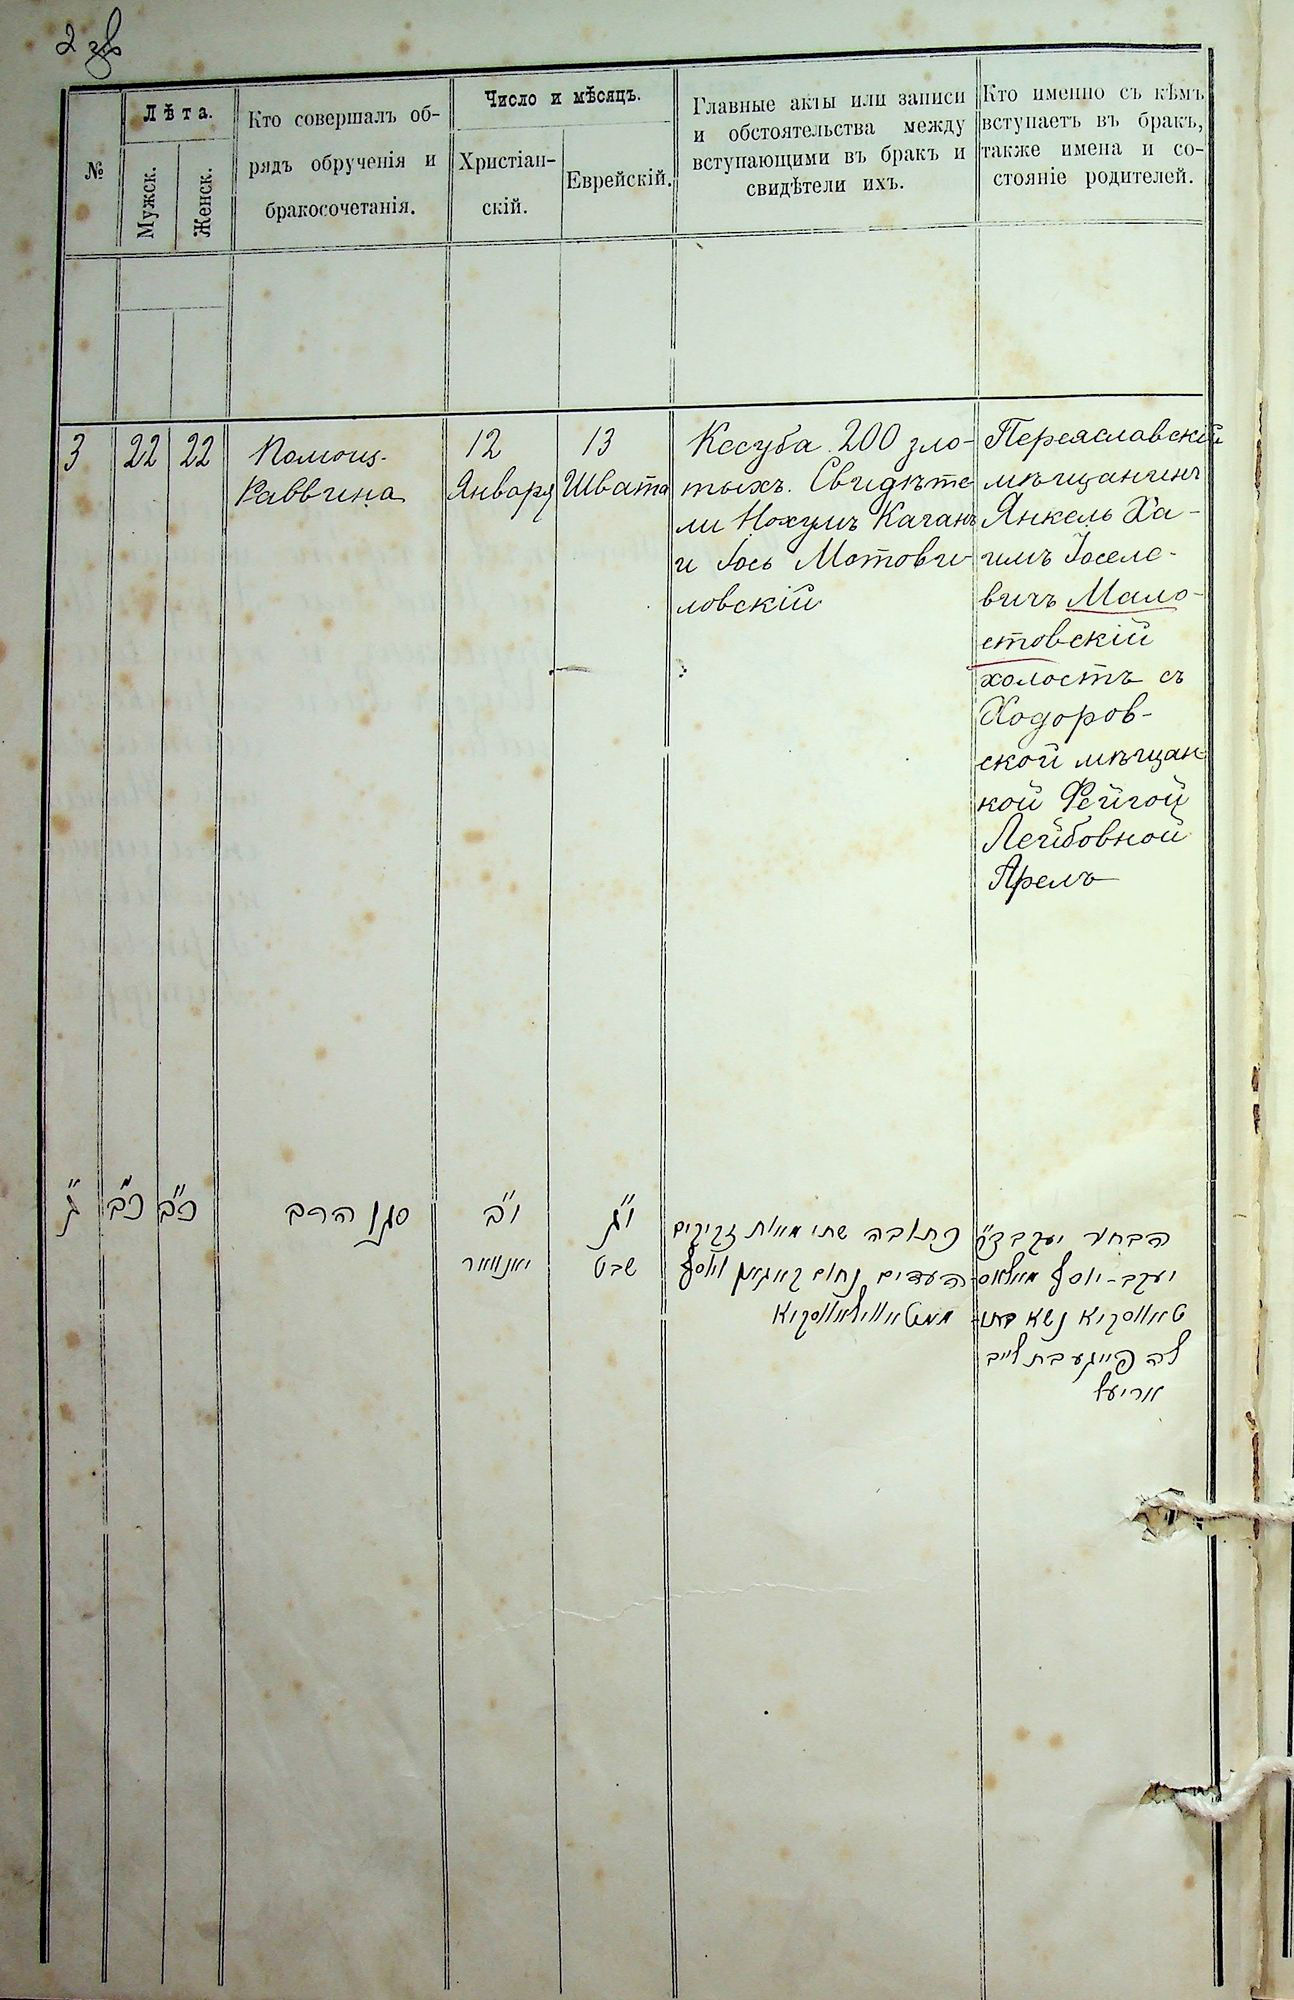 2
№
Лѣта.
Мужск.
Женск.
Кто совершалъ об-
рядъ обрученія и
бракосочетанія.
Число и мѣсяцъ.
Христіан-
скій.
Еврейскій.
Главные акты или записи
и обстоятельства между
вступающими въ бракъ и
свидѣтели ихъ.
Кто именно съ кѣмъ
вступаетъ въ бракъ,
также имена и со-
стояніе родителей.
3
22
22
Помощ.
Раввина
12
Января
13
Швата
Ксуба 200 зло-
тыхъ. Свидѣте
ли Нохумъ Каганъ
и Іось Мотови-
ловскій
Переяславскій
мѣщанинъ
Янкель Ха-
имъ Іоселе-
вичъ Мало-
стовскій
холостъ съ
Ходоров-
ской мѣщан-
кой Фейгой
Лейбовной
Арелъ
ג"
כ"ב
כ"ב
סגן הרב
י"ב
יאנוואר
י"ג
שבט
כתובה שתי מאות זקוקים
העדים נחום קאגאן ויוסף
הבחור יעקב
יעקב-יוסף
נשא
לה פייגע בת לייב
אריעל